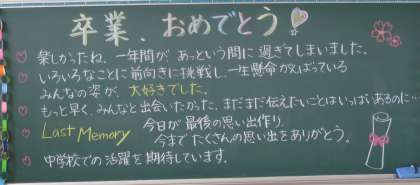 卒業、おめでとう
楽しかったね、一年間が あっという間に過ぎてしまいました。
いろいろなことに前向きに挑戦し、一生懸命がんばっている
みんなの姿が、大好きでした。
もっと早く、みんなと出会いたかった。まだまだ伝えたいことはいっぱいあるのに…
Last Memory 今日が最後の思い出作り。
今までたくさんの思い出をありがとう。
中学校での活躍を期待しています。